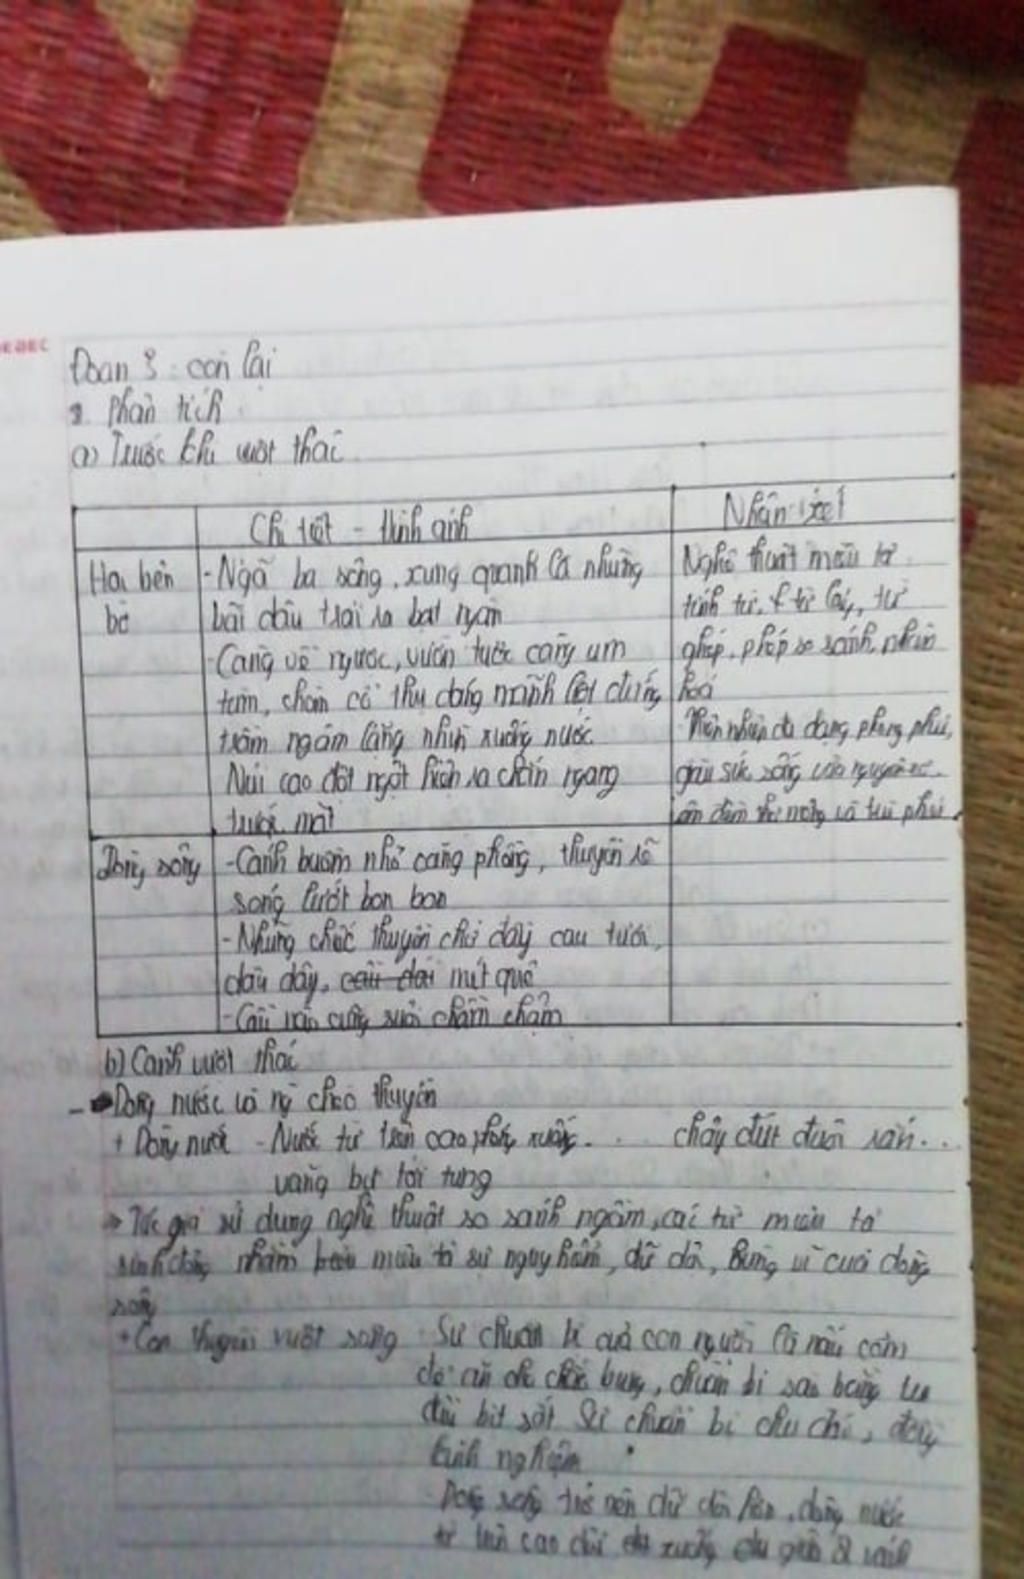 Đoạn 3: còn lại
2. Phân tích
a) Trước khi vượt thác
Chi tiết - hình ảnh
Nhận xét
Hai bên
bờ
- Ngã ba sông, xung quanh là những
bãi dâu trải ra bạt ngàn
- Càng về ngược, vườn tược càng um
tùm, chòm cổ thụ dáng mãnh liệt đứng
trầm ngâm lặng nhìn xuống nước
Núi cao đột ngột hiện ra chắn ngang
trước mặt
Nghệ thuật miêu tả
tính từ, từ láy, từ
ghép, phép so sánh, nhân
hoá
Thiên nhiên đa dạng phong phú,
giàu sức sống vừa nguyên sơ
vừa đậm thơ mộng và trù phú
Dòng sông
- Cánh buồm nhỏ căng phồng, thuyền rẽ
sóng lướt bon bon
- Những chiếc thuyền chở đầy cau tươi,
dây mây, mít quế
- xuôi chầm chậm
b) Cảnh vượt thác
- Dòng nước và chèo thuyền
+ Dòng nước - Nước từ trên cao phóng xuống... chảy đứt đuôi rắn...
văng bọt tới tung
Tác giả sử dụng nghệ thuật so sánh ngầm, các từ miêu tả
sinh động nhằm miêu tả sự nguy hiểm, dữ dội, hùng vĩ của dòng
sông
+ Con thuyền vượt sông - Sự chuẩn bị của con người là nấu cơm
để ăn để chắc bụng, chuẩn bị sào bằng tre
đầu bịt sắt. Sự chuẩn bị chu đáo, đầy
kinh nghiệm
Dòng sông trở nên dữ dội hơn, dòng nước
từ trên cao xuống